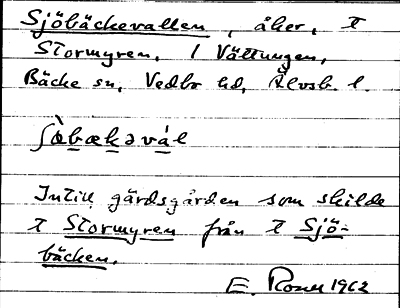 Sjöbäckevallen, åker, t
Stormyren, 1 Vättungen,
Bäcke sn, Vedbo hd, Älvsb. l.
ʃòbækəvál
Intill gärdsgården som skilde
t Stormyren från t Sjö-
bäcken.
E. 1962